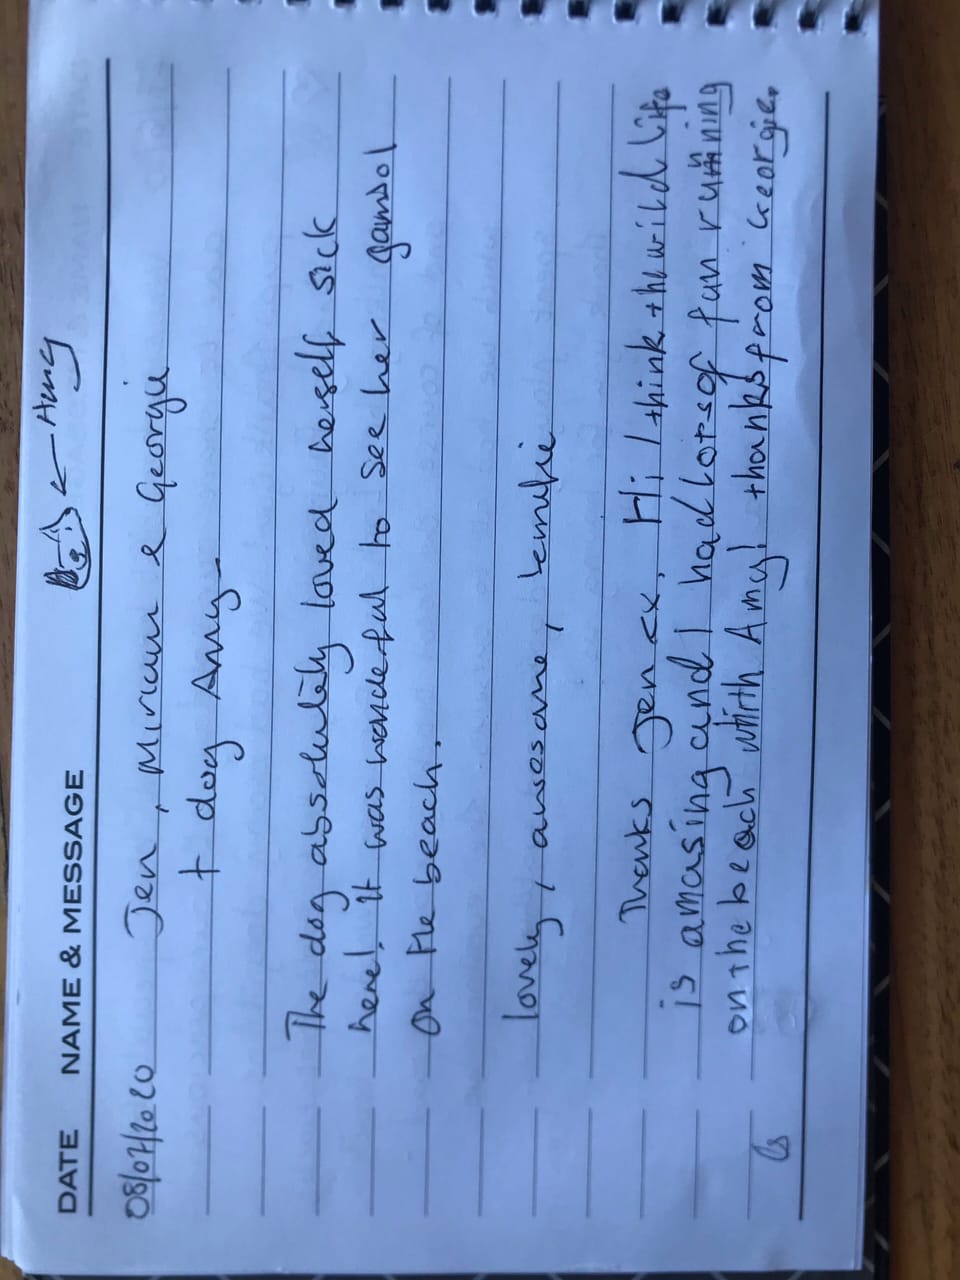 DATE NAME & MESSAGE ← Amy
08/07/2020 Jen, Miriam & Georgie
+ dog Amy
The dog absolutely loved herself sick
here! It was wonderful to see her gambol
on the beach.
lovely, awesome, terrific
Thanks Jen xx. Hi I think the wild life
is amasing and I had lots of fun running
on the beach whith Amy! thanks from Georgie.